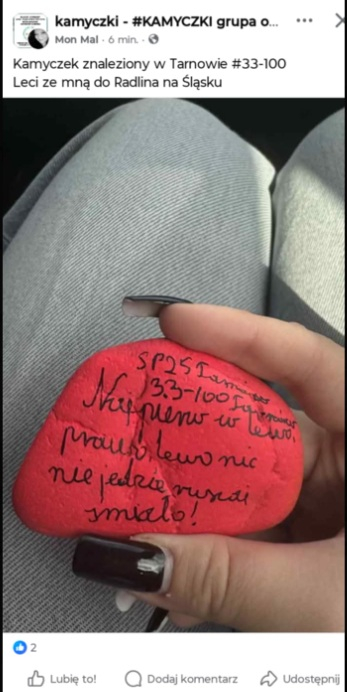 kamyczki - #KAMYCZKI grupa o...
Mon Mal · 6 min. ·
Kamyczek znaleziony w Tarnowie #33-100
Leci ze mną do Radlina na Śląsku
SP25 Tarnów
33-100
Najpierw w lewo,
prawo, lewo nic
nie jedzie ruszaj
śmiało!
2
Lubię to!
Dodaj komentarz
Udostępnij